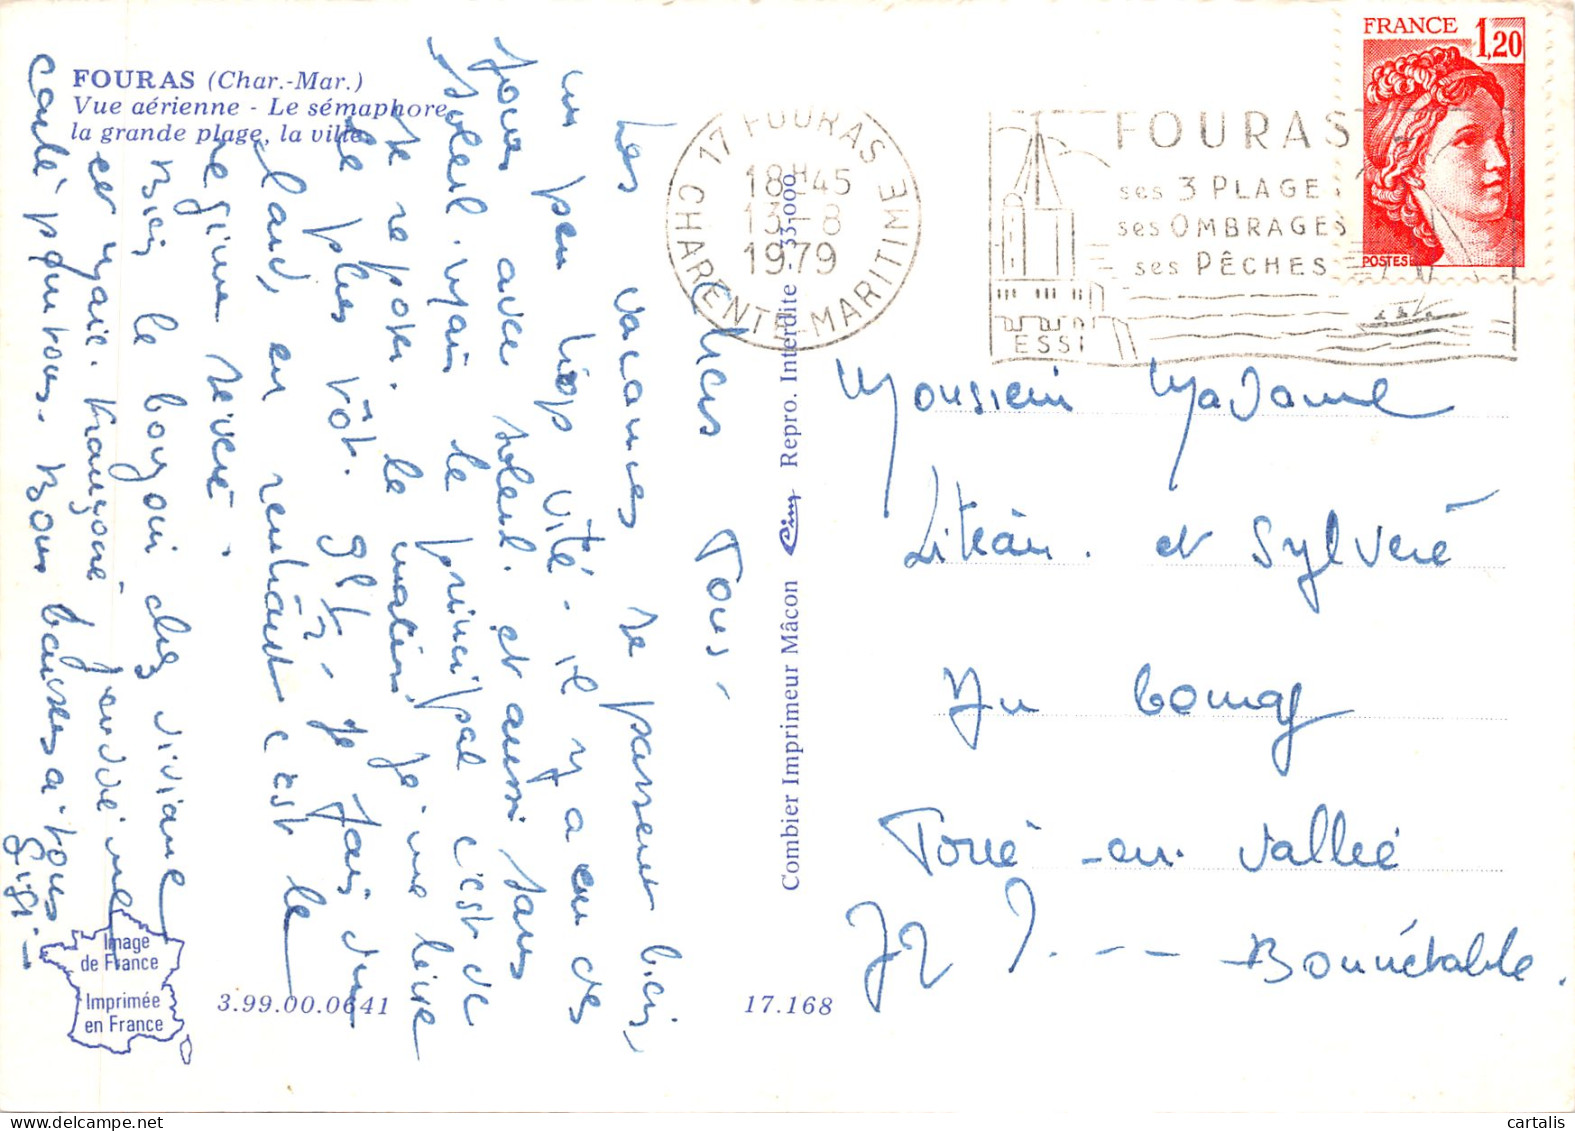 FOURAS (Char.-Mar.)
Vue aérienne - Le sémaphore,
la grande plage, la ville.
Chers Tous,
Les vacances se passent bien,
un peu trop vite. il y a eu des
jours avec soleil. et aussi sans
soleil. mais le principal c'est de
se reposer. le matin je me lève
le plus tôt. 9h½. je fais du
land, en rentrant c'est le
régime sévère.
Bien le bonjour chez viviane
et Marie. Françoise
carte pour tous. Bons baisers à tous
Gigi.
Image
de France
Imprimée
en France
3.99.00.0641
17.168
Combier Imprimeur Mâcon Cim Repro. Interdite - 33.000
17 FOURAS
18H45
13-8
1979
CHARENTE-MARITIME
FOURAS
ses 3 PLAGES
ses OMBRAGES
ses PÊCHES
ESSI
FRANCE 1,20
POSTES
Monsieur Madame
et Sylvère
Au bourg
Torcé-en-Vallée
72 Bonnétable.
cartalis